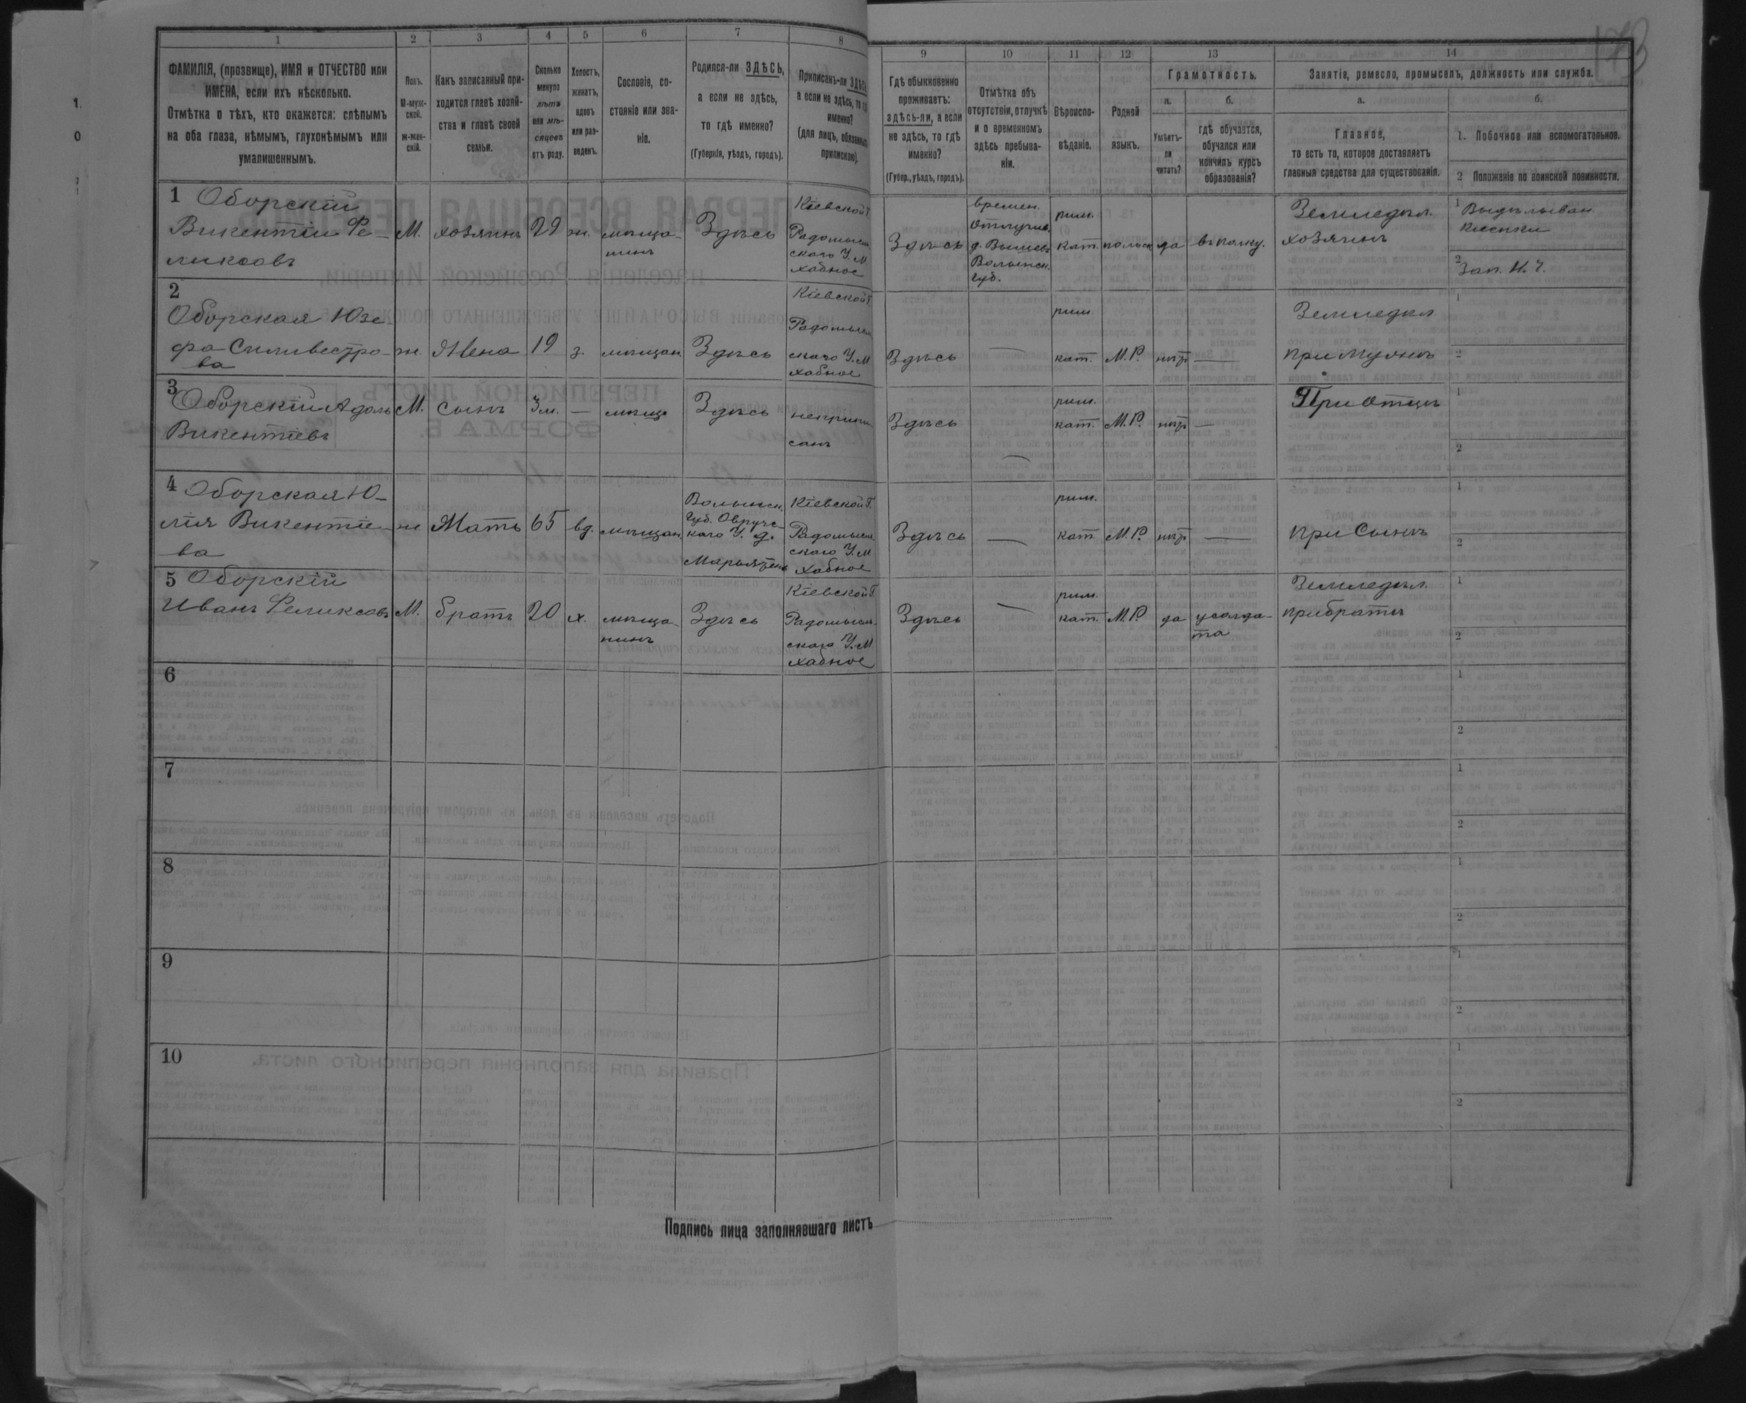 1 2 3 4 5 6 7 8 9 10 11 12 13 14
ФАМИЛІЯ, (прозвище), ИМЯ и ОТЧЕСТВО или
ИМЕНА, если ихъ нѣсколько.
Отмѣтка о тѣхъ, кто окажется: слѣпымъ
на оба глаза, нѣмымъ, глухонѣмымъ или
умалишеннымъ.
Полъ.
М-муж-
ской.
Ж-жен-
скій.
Какъ записанный при-
ходится главѣ хозяй-
ства и главѣ своей
семьи.
Сколько
минуло
лѣтъ
или мѣ-
сяцевъ
отъ роду.
Холостъ,
женатъ,
вдовъ
или раз-
веденъ.
Сословіе, со-
стояніе или зва-
ніе.
Родился-ли ЗДѢСЬ,
а если не здѣсь,
то гдѣ именно?
(Губернія, уѣздъ, городъ).
Приписанъ-ли ЗДѢСЬ
а если не здѣсь, то гдѣ
именно?
(для лицъ, обязанныхъ
припискою).
Гдѣ обыкновенно
проживаетъ:
здѣсь-ли, а если
не здѣсь, то гдѣ
именно?
(Губер., уѣздъ, городъ).
Отмѣтка объ
отсутствіи, отлучкѣ
и о временномъ
здѣсь пребыва-
ніи.
Вѣроиспо-
вѣданіе.
Родной
языкъ.
Грамотность.
а.
Умѣетъ-
ли
читать?
б.
гдѣ обучается,
обучался или
кончилъ курсъ
образованія?
Занятія, ремесло, промыселъ, должность или служба.
а.
Главное,
то есть то, которое доставляетъ
главныя средства для существованія.
б.
1. Побочное или вспомогательное.
2 Положеніе по воинской повинности.
1 Оборскій
Викентій Фе-
ликсовъ
М.
хозяинъ
29
ж.
мѣща-
нинъ
Здѣсь
Кіевской Г.
Радомысл.
скаго У. М
Хабное
Здѣсь
времен.
Отлучив.
Волынск.
Губ.
рим.
кат.
польск
да
въ полку.
Земледѣл.
хозяинъ
1
2 Зап. Н. Ч.
2
Оборская Юзе-
фа Сильвестро-
ва
ж
Жена
19
з.
мѣщан.
Здѣсь
Кіевской Г.
Радомысл.
скаго У. М
Хабное
Здѣсь
—
рим.
кат.
М.Р.
нѣтъ
—
Земледѣл
при Мужѣ
1
2
3
Оборскій Адоль
Викентіевъ
М.
сынъ
3м.
—
мѣща
Здѣсь
неприпи-
санъ
Здѣсь
—
рим.
кат.
М.Р.
нѣтъ
—
При Отцѣ
1
2
4 Оборская Ю-
лія Викентіе-
ва
ж
Мать
65
вд.
мѣщан.
Волынск.
Губ. Овруч-
каго У. д.
Кіевской Г.
Радомысл.
скаго У. М
Хабное
Здѣсь
—
рим.
кат.
М.Р.
нѣтъ
—
при Сынѣ
1
2
5 Оборскій
Иванъ Феликсовъ
М.
братъ
20
х.
мѣща-
нинъ
Здѣсь
Кіевской Г.
Радомысл.
скаго У. М
Хабное
Здѣсь
—
рим.
кат.
М.Р.
да
у солда-
та
Земледѣл.
при братѣ
1
2
6
1
2
7
1
2
8
1
2
9
1
2
10
1
2
Подпись лица заполнявшаго листъ